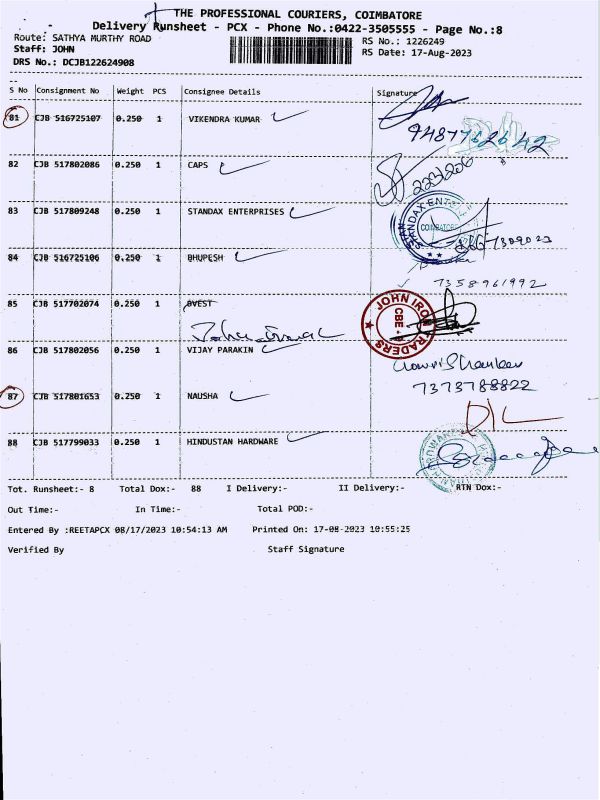 THE PROFESSIONAL COURIERS, COIMBATORE
Delivery Runsheet - PCX - Phone No.:0422-3505555 - Page No.:8
Route: SATHYA MURTHY ROAD
RS No.: 1226249
Staff: JOHN
RS Date: 17-Aug-2023
DRS No.: DCJB122624908
S No Consignment No Weight PCS Consignee Details Signature
81 CJB 516725107 0.250 1 VIKENDRA KUMAR
9487762642
82 CJB 517802086 0.250 1 CAPS
83 CJB 517809248 0.250 1 STANDAX ENTERPRISES
84 CJB 516725106 0.250 1 BHUPESH
7358961992
85 CJB 517702074 0.250 1 OVEST
JOHN IRON TRADERS CBE
86 CJB 517802056 0.250 1 VIJAY PARAKIN
7373788822
87 CJB 517801653 0.250 1 NAUSHA
D/L
88 CJB 517799033 0.250 1 HINDUSTAN HARDWARE
Tot. Runsheet:- 8 Total Dox:- 88 I Delivery:- II Delivery:- RTN Dox:-
Out Time:- In Time:- Total POD:-
Entered By :REETAPCX 08/17/2023 10:54:13 AM Printed On: 17-08-2023 10:55:25
Verified By Staff Signature